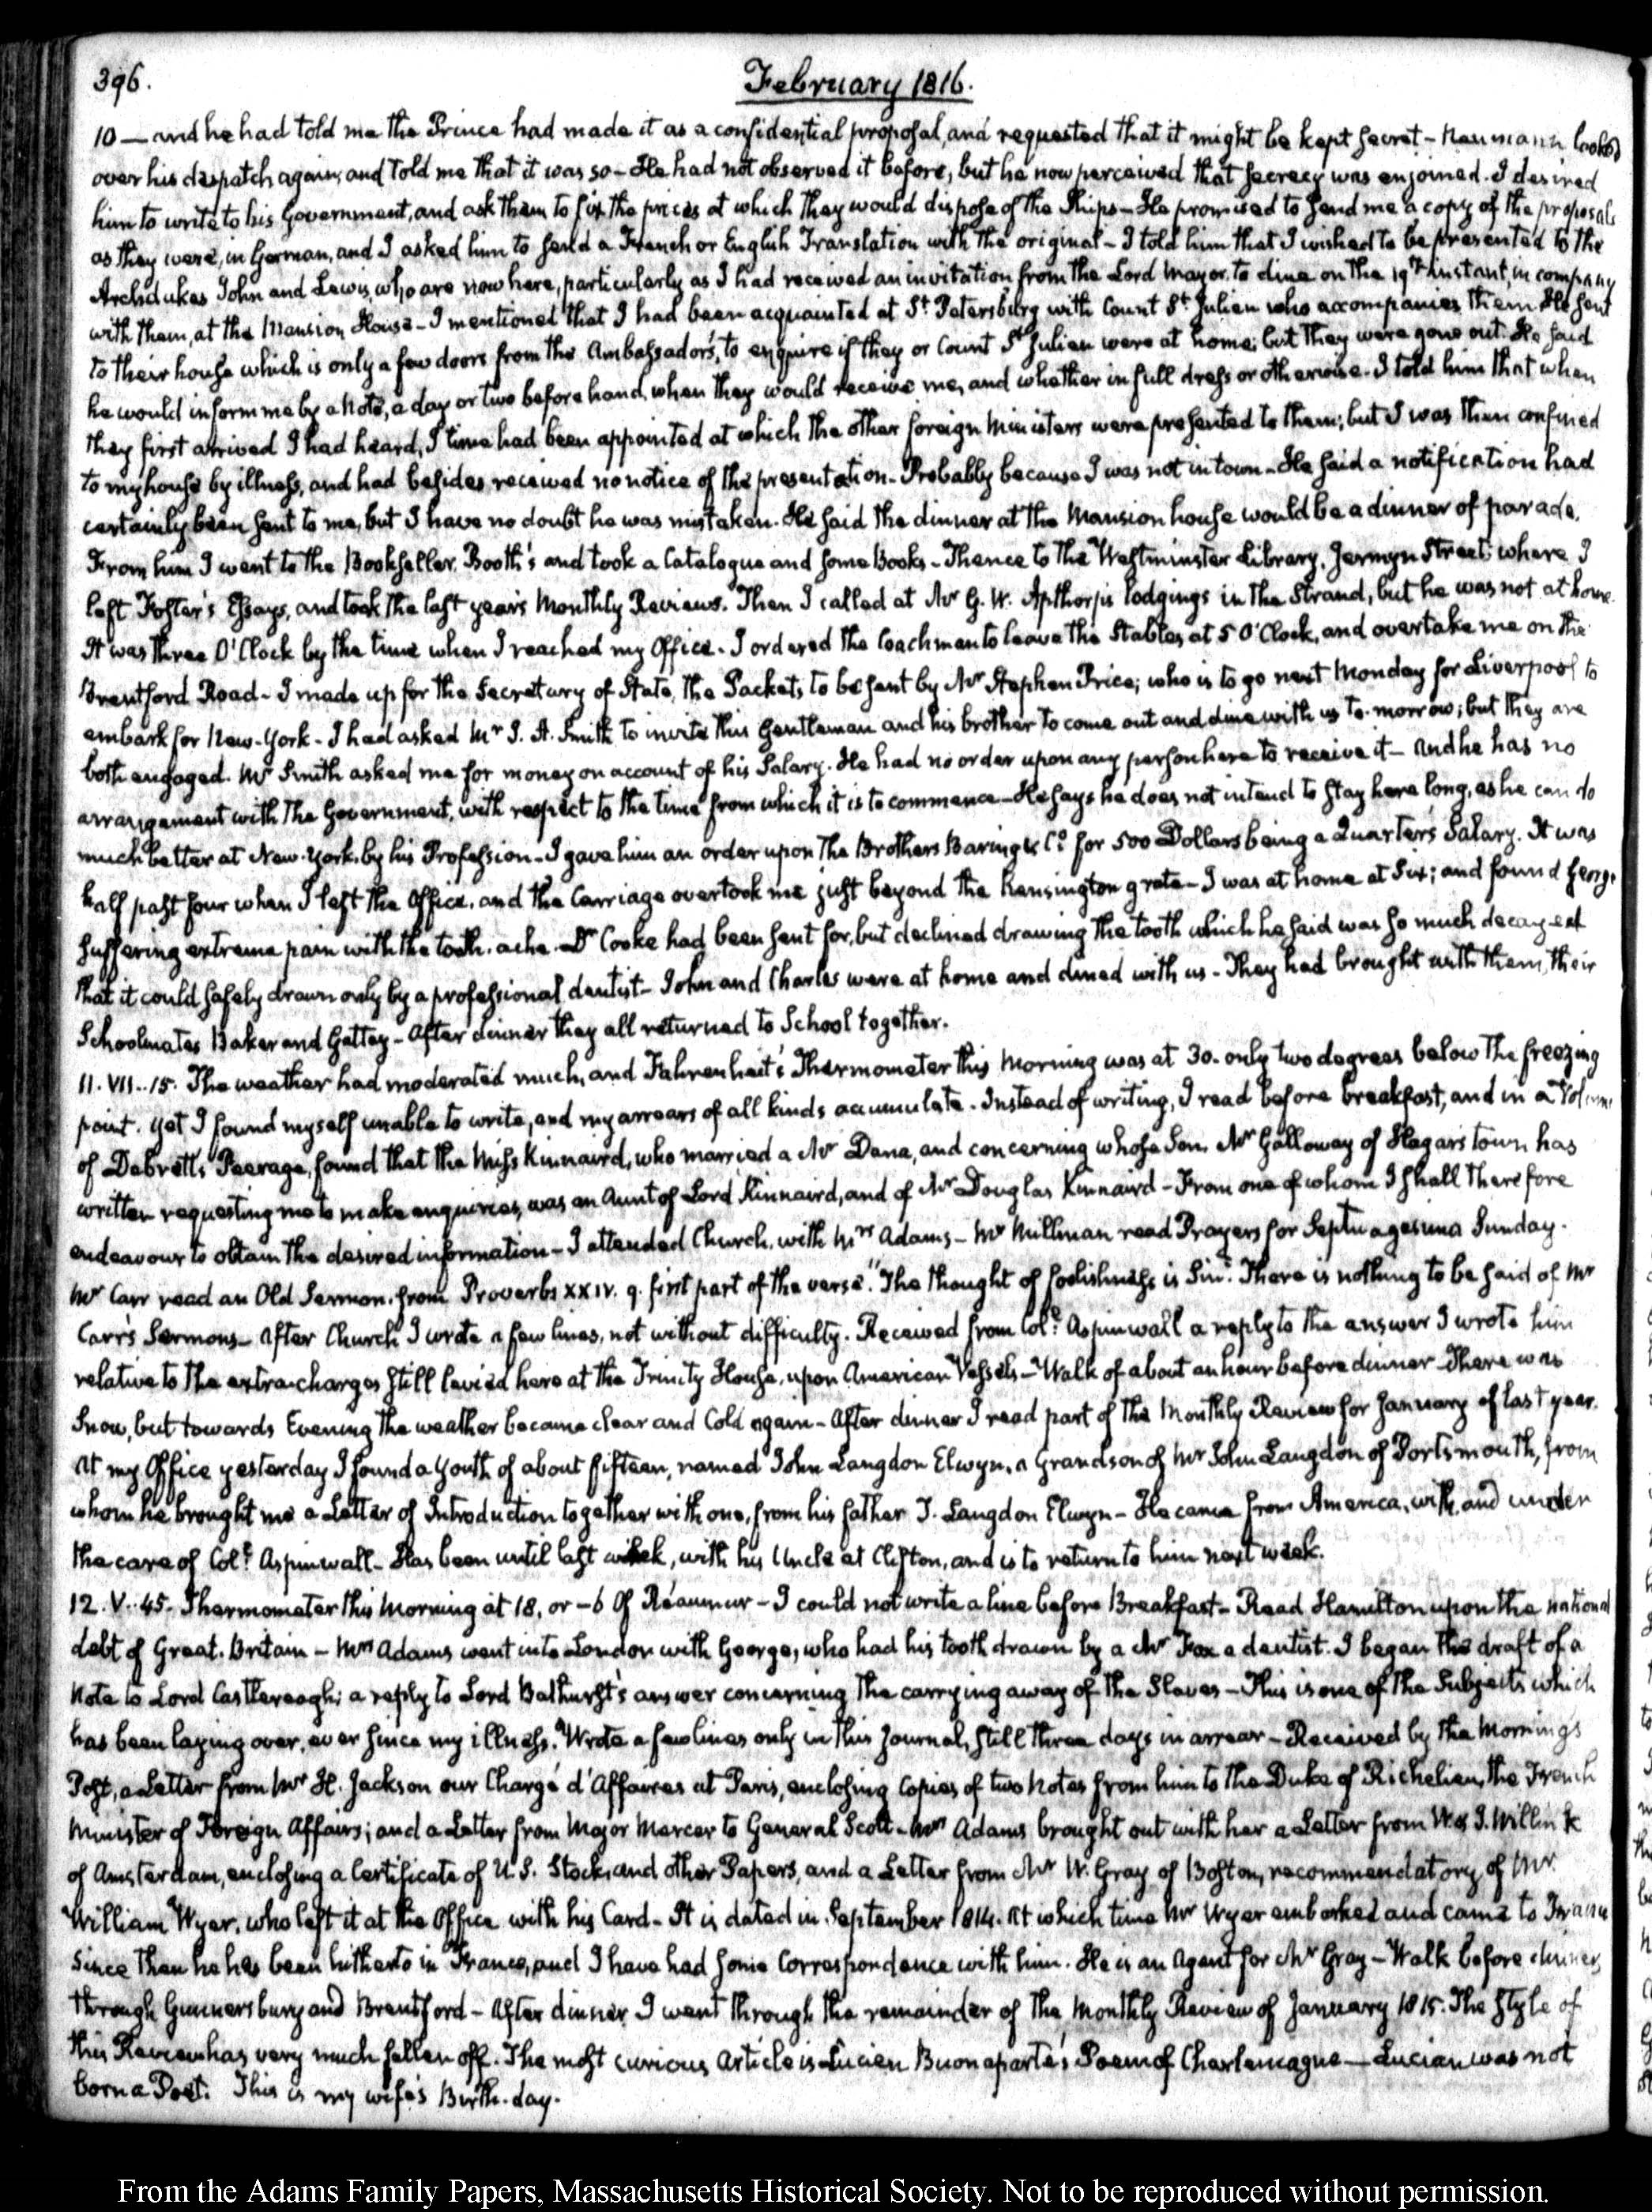 396.
February 1816.
10 — and he had told me the Prince had made it as a confidential proposal, and requested that it might be kept secret - Naumann looked
over his despatch again, and told me that it was so - He had not observed it before, but he now perceived that secrecy was enjoined. I desired
him to write to his Government, and ask them to fix the prices at which they would dispose of the Ships - He promised to send me a copy of the proposals
as they were, in German, and I asked him to send a French or English Translation with the original - I told him that I wished to be presented to the
Archdukes John and Lewis, who are now here, particularly as I had received an invitation from the Lord Mayor, to dine on the 19th instant, in company
with them, at the Mansion House - I mentioned that I had been acquainted at St Petersburg with Count St Julien who accompanies them. He sent
to their house which is only a few doors from the Ambassador's, to enquire if they or Count St Julien were at home; but they were gone out. He said
he would inform me by a Note, a day or two before hand, when they would receive me, and whether in full dress or otherwise. I told him that when
they first arrived I had heard, I time had been appointed at which the other foreign Ministers were presented to them; but I was then confined
to my house by illness, and had besides received no notice of the presentation - Probably because I was not in town - He said a notification had
certainly been sent to me, but I have no doubt he was mistaken. He said the dinner at the Mansion house would be a dinner of parade.
From him I went to the Bookseller, Booth's and took a Catalogue and some Books - Thence to the Westminster Library, Jermyn Street; where I
left Foster's Essays, and took the last year's Monthly Reviews. Then I called at Mr G. W. Apthorp's lodgings in the Strand, but he was not at home.
It was three O'Clock by the time when I reached my Office - I ordered the Coachman to leave the Stables at 5 O'Clock, and overtake me on the
Brentford Road - I made up for the Secretary of State, the Packets to be sent by Mr Stephen Price; who is to go next Monday for Liverpool to
embark for New-York - I had asked Mr J. A. Smith to invite this Gentleman and his brother to come out and dine with us to-morrow; but they are
both engaged. Mr Smith asked me for money on account of his Salary. He had no order upon any person here to receive it - and he has no
arrangement with the Government, with respect to the time from which it is to commence - He says he does not intend to stay here long, as he can do
much better at New-York, by his Profession - I gave him an order upon the Brothers Baring & Co for 500 Dollars being a Quarter's Salary. It was
half past four when I left the Office, and the Carriage overtook me just beyond the Kensington grate - I was at home at Six; and found George
suffering extreme pain with the tooth-ache. Dr Cooke had been sent for, but declined drawing the tooth which he said was so much decayed
that it could safely drawn only by a professional dentist - John and Charles were at home and dined with us - They had brought with them, their
Schoolmates Baker and Gattey - After dinner they all returned to School together.
11. VII..15. The weather had moderated much, and Fahrenheit's Thermometer this Morning was at 30. only two degrees below the freezing
point. Yet I found myself unable to write, and my arrears of all kinds accumulate. Instead of writing, I read before breakfast, and in a Volume
of Debrett's Peerage, found that the Miss Kinnaird, who married a Mr Dana, and concerning whose Son Mr Galloway of Hagar's town has
written requesting me to make enquiries, was an Aunt of Lord Kinnaird, and of Mr Douglas Kinnaird - From one of whom I shall therefore
endeavour to obtain the desired information - I attended Church, with Mrs Adams - Mr Millman read Prayers for Septuagesima Sunday.
Mr Carr read an Old Sermon, from Proverbs XXIV. 9. first part of the verse. "The thought of foolishness is Sin". There is nothing to be said of Mr
Carr's Sermons - After Church I wrote a few lines, not without difficulty. Received from Coll. Aspinwall a reply to the answer I wrote him
relative to the extra-charges still levied here at the Trinity House, upon American Vessels - Walk of about an hour before dinner. There was
Snow, but towards Evening the weather became clear and Cold again - After dinner I read part of the Monthly Review for January of last year.
At my Office yesterday I found a Youth of about fifteen, named John Langdon Elwyn, a Grandson of Mr John Langdon of Portsmouth, from
whom he brought me a Letter of Introduction together with one, from his father J. Langdon Elwyn - He came from America, with and under
the care of Coll. Aspinwall - Has been until last week, with his Uncle at Clifton, and is to return to him next week.
12. V..45. Thermometer this Morning at 18. or -6 Of Réaumur - I could not write a line before Breakfast - Read Hamilton upon the national
debt of Great-Britain - Mrs Adams went into London with George, who had his tooth drawn by a Mr Fox a dentist. I began the draft of a
Note to Lord Castlereagh; a reply to Lord Bathurst's answer concerning the carrying away of the Slaves - This is one of the Subjects which
has been laying over, ever since my illness. Wrote a few lines only in this Journal, still three days in arrear - Received by the Morning's
Post, a Letter from Mr H. Jackson our Chargé d'Affaires at Paris, enclosing Copies of two Notes from him to the Duke of Richelieu, the French
Minister of Foreign Affairs; and a Letter from Major Mercer to General Scott - Mrs Adams brought out with her a Letter from W. & J. Willink
of Amsterdam, enclosing a Certificate of U.S. Stock, and other Papers, and a Letter from Mr W. Gray of Boston, recommendatory of Mr
William Wyer, who left it at the Office with his Card - It is dated in September 1814. At which time Mr Wyer embarked and came to France
Since then he has been hitherto in France, and I have had some Correspondence with him. He is an Agent for Mr Gray - Walk before dinner,
through Gunnersbury and Brentford - After dinner I went through the remainder of the Monthly Review of January 1815. The style of
this Review has very much fallen off. The most curious Article is Lucien Buonaparte's Poem of Charlemagne — Lucien was not
born a Poet. This is my wife's Birth-day.
From the Adams Family Papers, Massachusetts Historical Society. Not to be reproduced without permission.